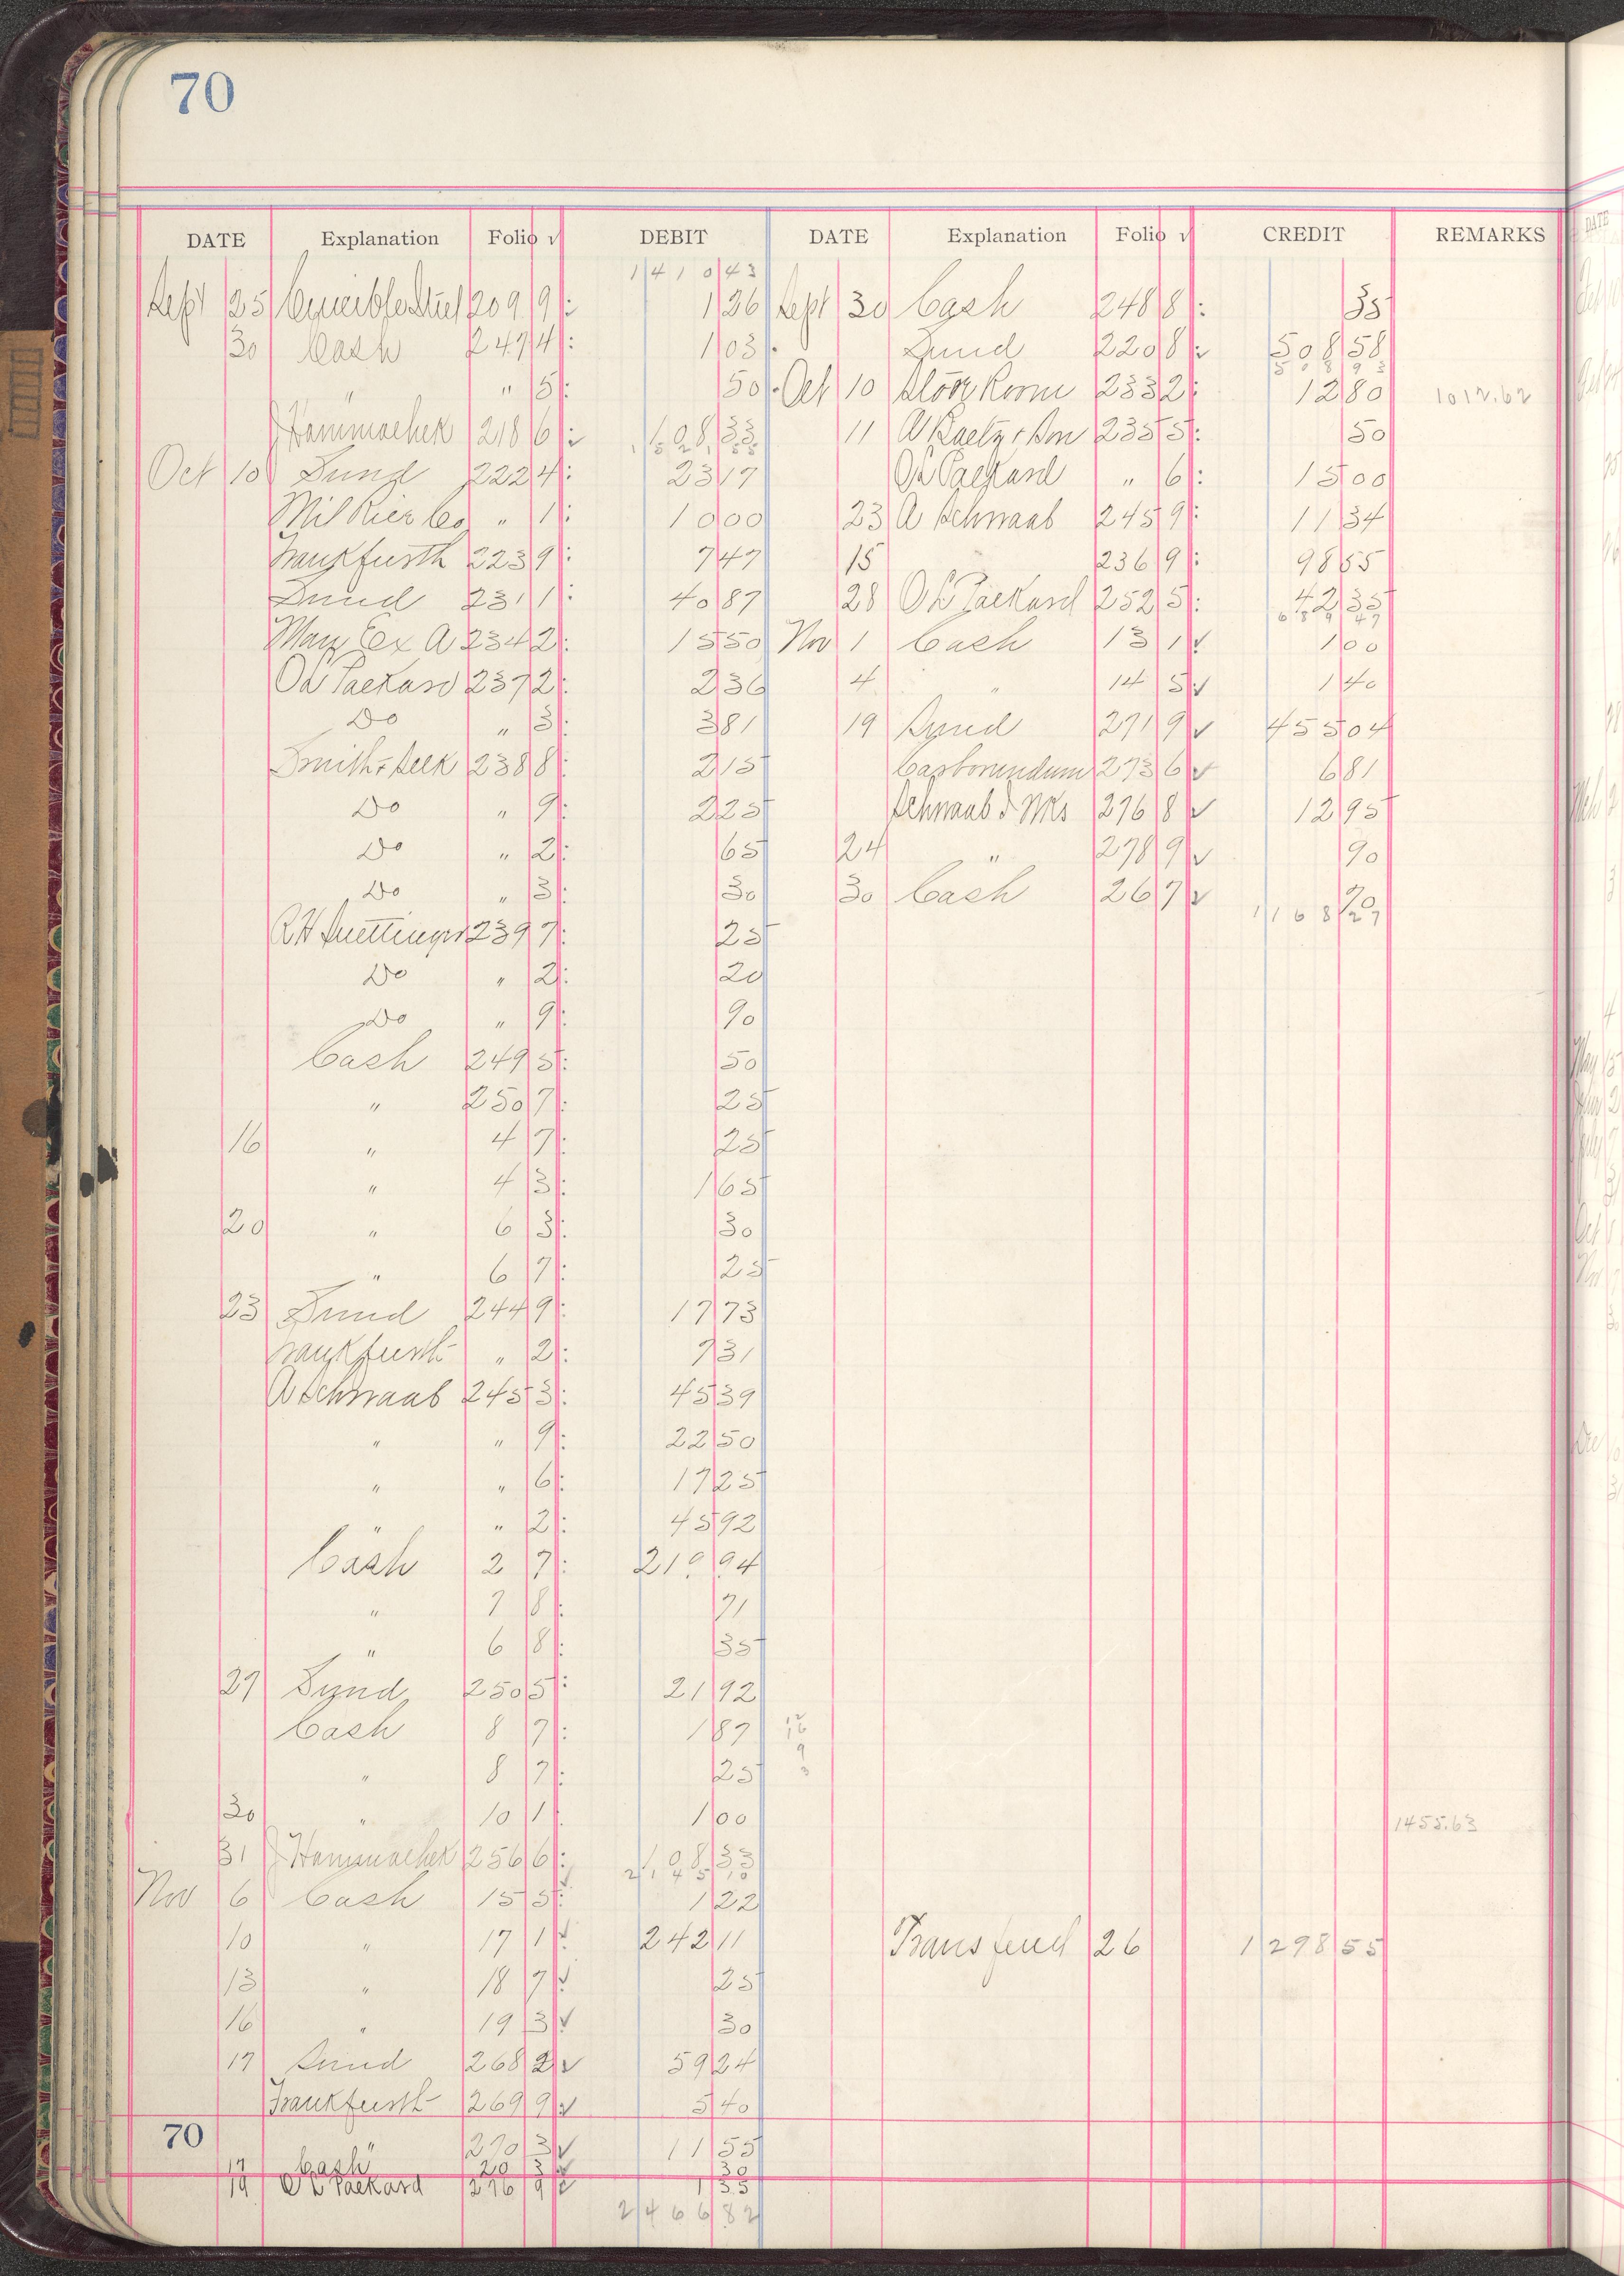 70
DATE Explanation Folio √ DEBIT DATE Explanation Folio √ CREDIT REMARKS
1410 43
Sept 25 Crucible Steel 209 9 : 1 26 Sept 30 Cash 248 8 : 35
30 Cash 247 4 : 1 03 Sund 220 8 : 508 58
508 93
" " 5 : 50 Oct 10 Store Room 233 2 : 12 80 1012.62
J Hammachek 218 6 : 108 33 11 A Baetz & Son 235 5 : 50
1521 55
Oct 10 Sund 222 4 : 23 17 O L Packard " 6 : 15 00
Mil Rier Co " 1 : 10 00 23 A Schwaab 245 9 : 11 34
Frankfurth 223 9 : 7 47 15 236 9 : 98 55
Sund 231 1 : 40 87 28 O L Packard 252 5 : 42 35
689 47
Man Ex A 234 2 : 15 50 Nov 1 Cash 13 1 √ 1 00
O L Packard 237 2 : 2 36 4 " 14 5 √ 1 40
Do " 3 : 3 81 19 Sund 271 9 √ 455 04
Smith & Seek 238 8 : 2 15 Carborundum 273 6 √ 6 81
Do " 9 : 2 25 Schwaab S Wks 276 8 √ 12 95
Do " 2 : 65 24 " 278 9 √ 90
Do " 3 : 30 30 Cash 26 7 √ 70
1168 27
R H 239 7 : 25
Do " 2 : 20
Do " 9 : 90
Cash 249 5 : 50
" 250 7 : 25
16 " 4 7 : 25
" 4 3 : 1 65
20 " 6 3 : 30
" 6 7 : 25
23 Sund 244 9 : 17 73
Frankfurth " 2 : 7 31
A Schwaab 245 3 : 45 39
" " 9 : 22 50
" " 6 : 17 25
" " 2 : 45 92
Cash 2 7 : 210 94
" 7 8 : 71
" 6 8 : 35
27 Sund 250 5 : 21 92
Cash 8 7 : 1 87 12
16
9
" 8 7 : 25 3
30 " 10 1 . 1 00 1455.63
31 J Hammachek 256 6 : 108 33
2145 10
Nov 6 Cash 15 5 √ 1 22
10 " 17 1 √ 242 11 Transferd 26 1298 55
13 " 18 7 √ 25
16 " 19 3 √ 30
17 Sund 268 2 √ 59 24
Frankfurth 269 9 √ 5 40
70 " 270 3 √ 11 55
17 Cash 20 3 √ 30
19 O L Packard 276 9 √ 1 35
2466 82